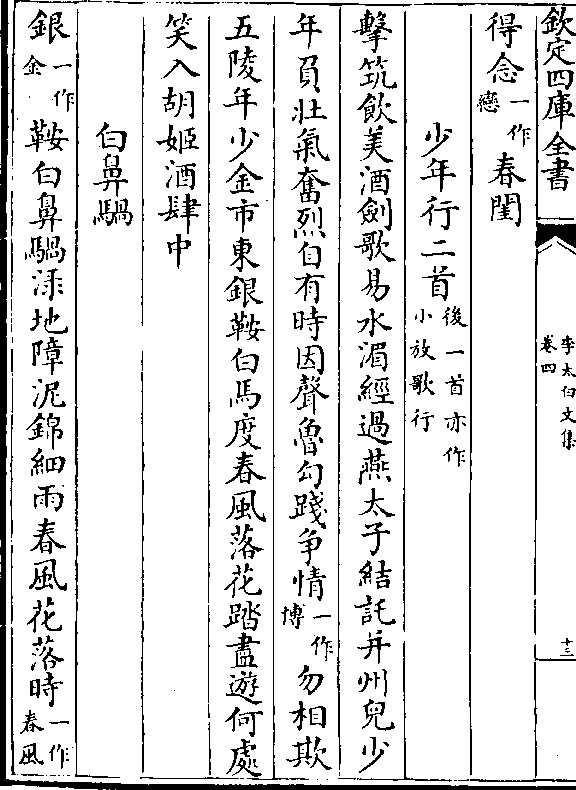 欽定四庫全書
李太白文集
卷四
十三
得念一作戀春閨
少年行二首後一首亦作小放歌行
擊筑飲美酒劍歌易水湄經過燕太子結託并州兒少
年負壯氣奮烈自有時因聲魯勾踐爭情一作博勿相欺
五陵年少金市東銀鞍白馬度春風落花踏盡遊何處
笑入胡姬酒肆中
白鼻騧
銀一作金鞍白鼻騧渌地障泥錦細雨春風花落時一作春風